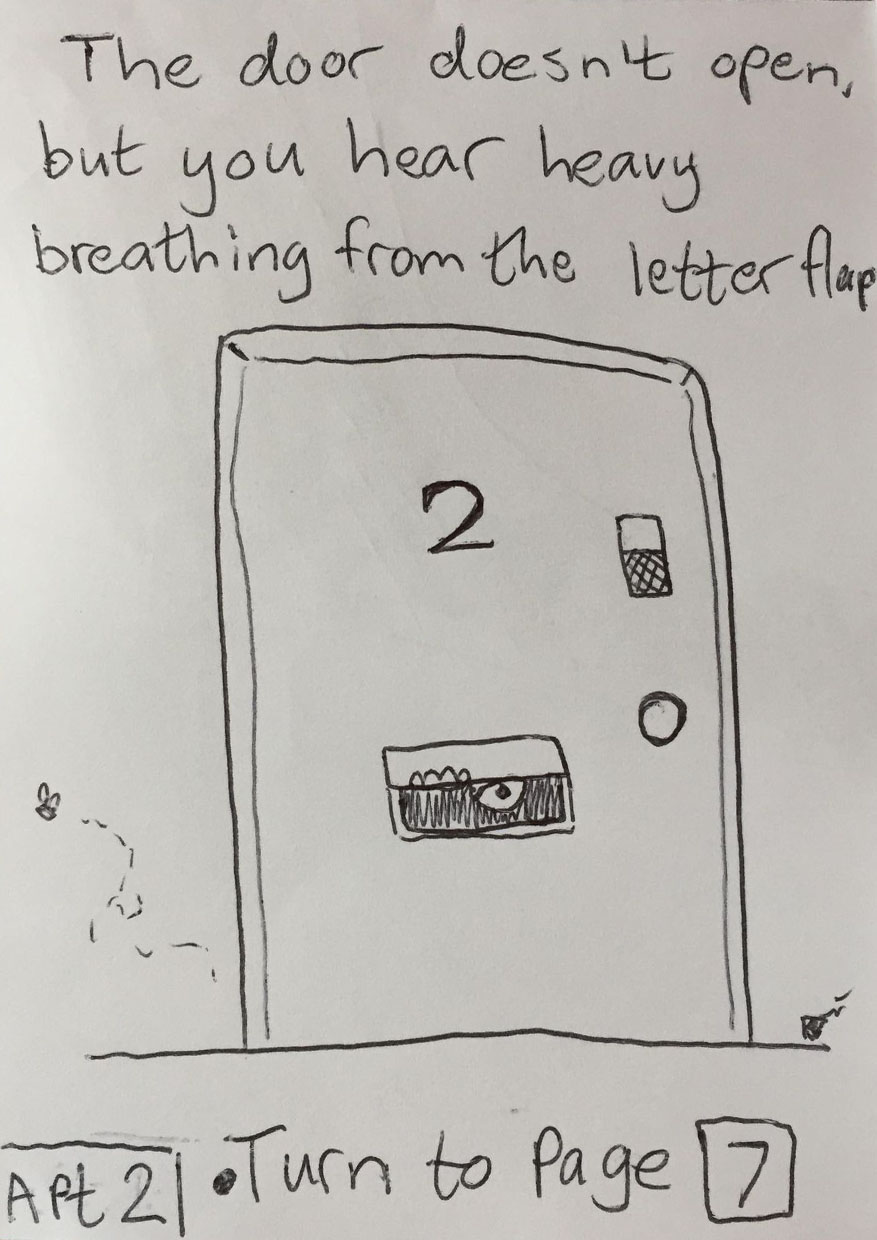 The door doesn't open,
but you hear heavy
breathing from the letter flap
2
Apt 2 • Turn to Page 7